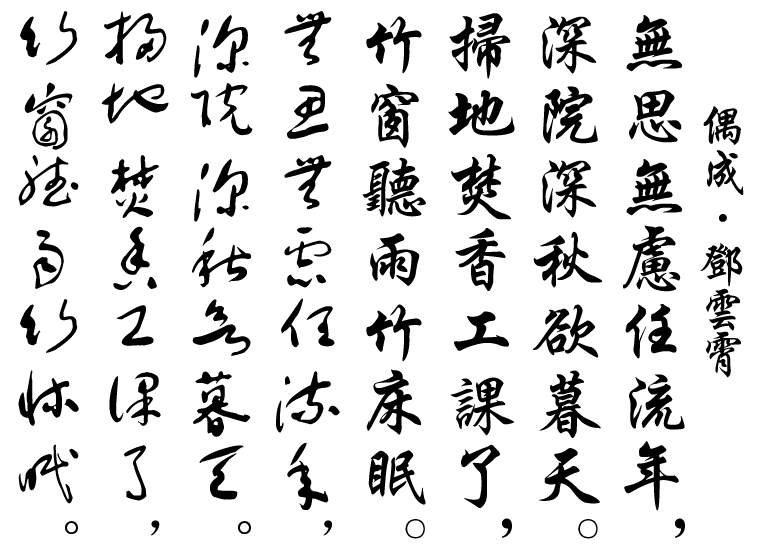 偶成·鄧雲霄
無思無慮任流年，
深院深秋欲暮天。
掃地焚香工課了，
竹窗聽雨竹床眠。
無思無慮任流年，
深院深秋欲暮天。
掃地焚香工課了，
竹窗聽雨竹床眠。